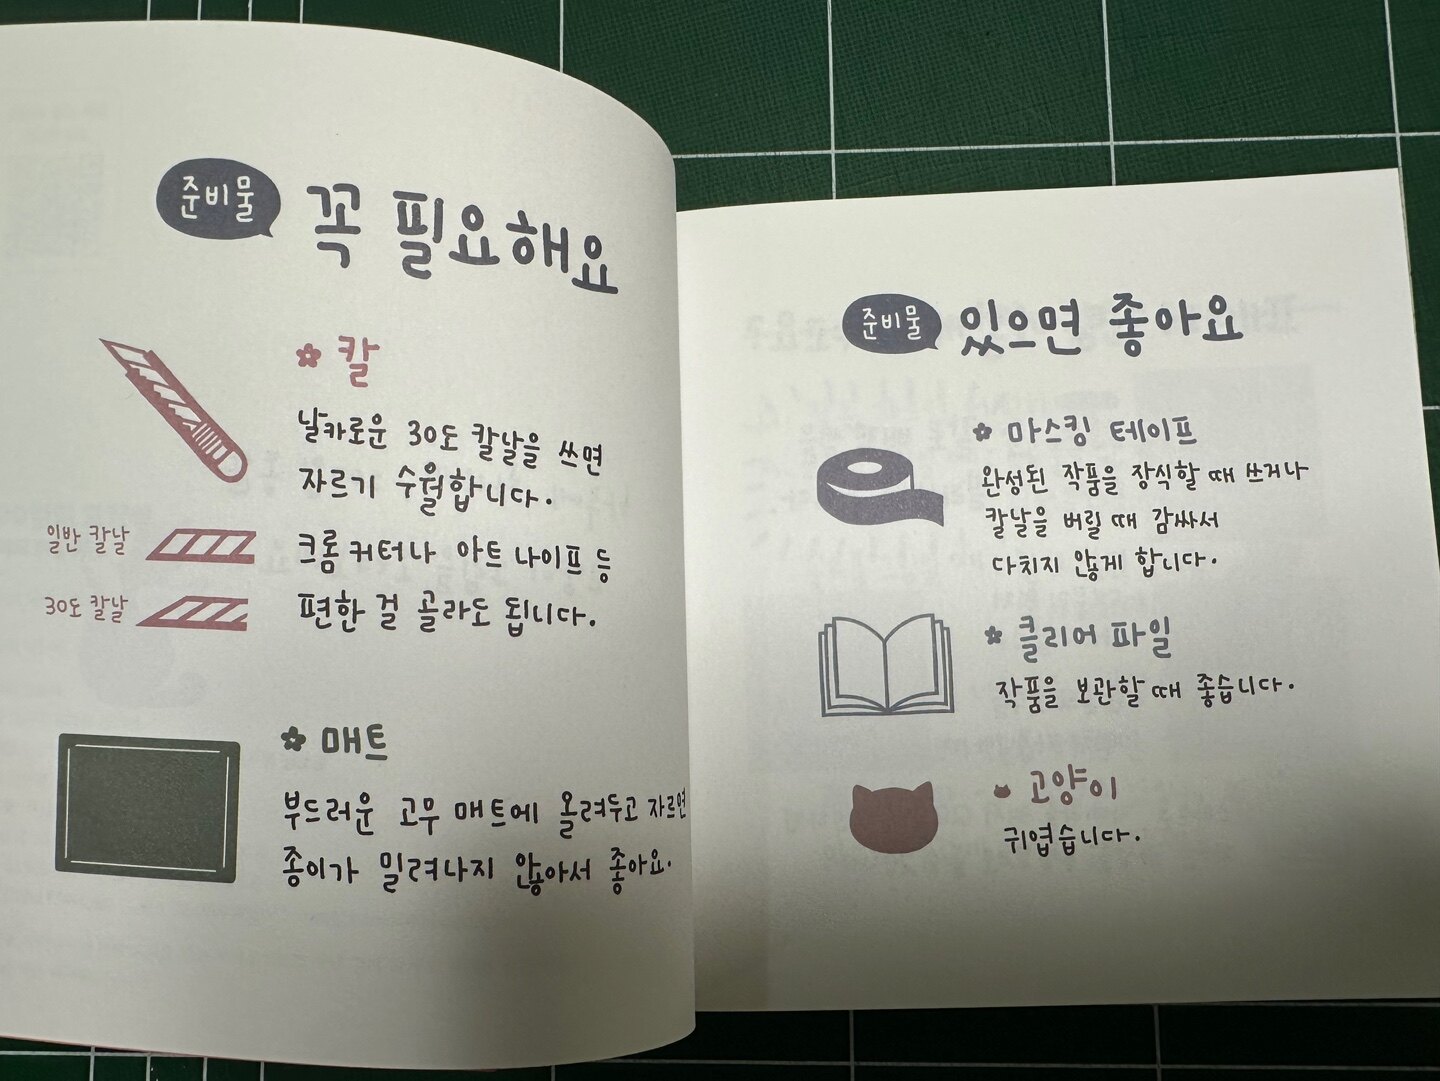 준비물
꼭 필요해요
칼
날카로운 30도 칼날을 쓰면
자르기 수월합니다.
크롬 커터나 아트 나이프 등
편한 걸 골라도 됩니다.
일반 칼날
30도 칼날
매트
부드러운 고무 매트에 올려두고 자르면
종이가 밀려나지 않아서 좋아요.
준비물
있으면 좋아요
마스킹 테이프
완성된 작품을 장식할 때 쓰거나
칼날을 버릴 때 감싸서
다치지 않게 합니다.
클리어 파일
작품을 보관할 때 좋습니다.
고양이
귀엽습니다.